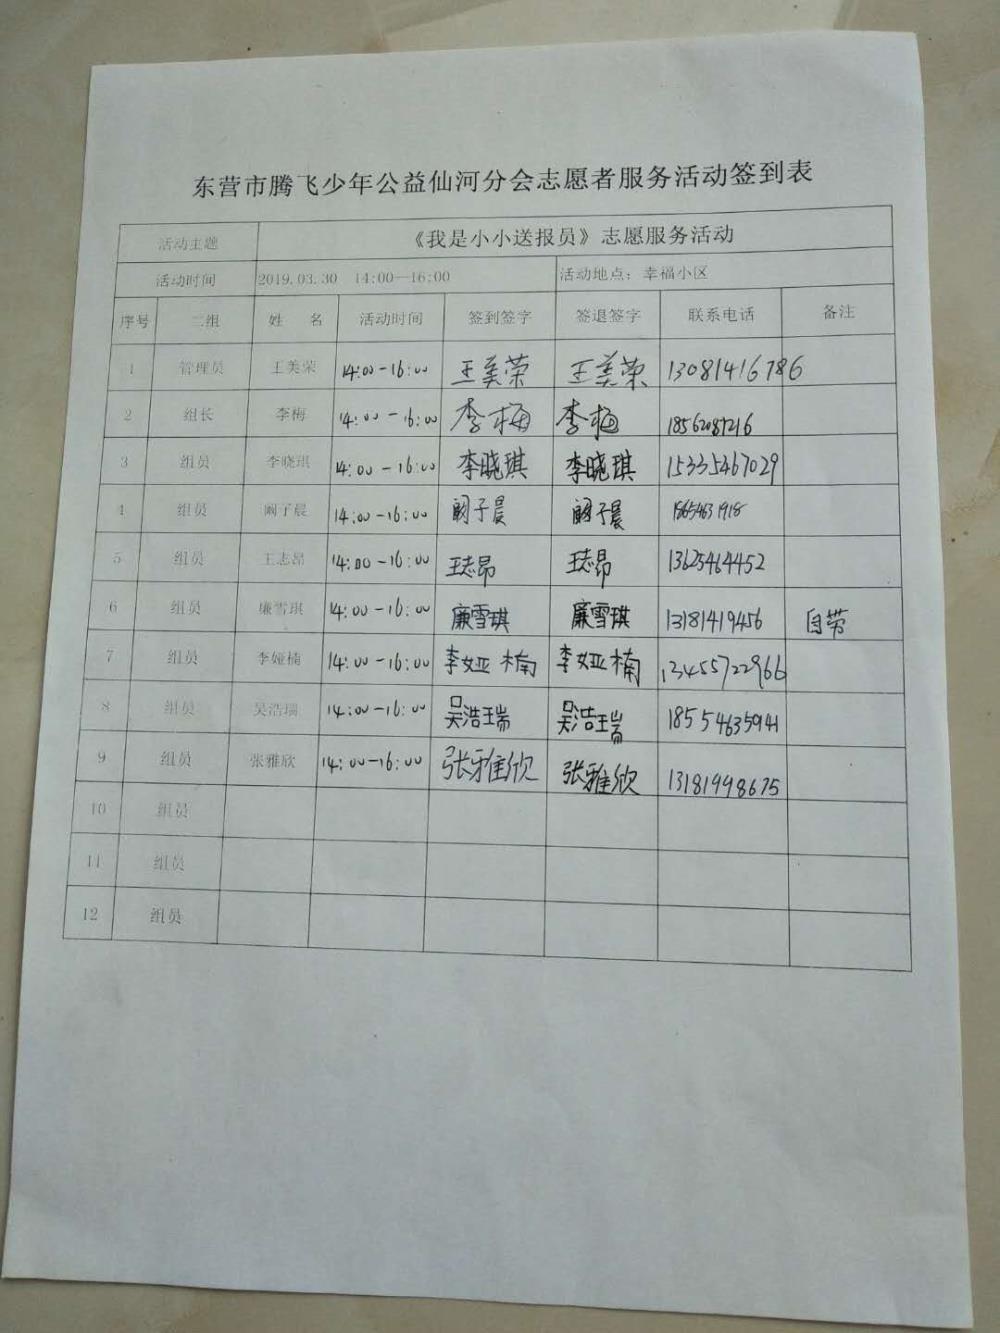 东营市腾飞少年公益仙河分会志愿者服务活动签到表
活动主题 《我是小小送报员》志愿服务活动
活动时间 2019.03.30 14:00—16:00 活动地点：幸福小区
序号 二组 姓 名 活动时间 签到签字 签退签字 联系电话 备注
1 管理员 王美荣 14:00-16:00 王美荣 王美荣 13081416786
2 组长 李梅 14:00-16:00 李梅 李梅 18562087216
3 组员 李晓琪 14:00-16:00 李晓琪 李晓琪 15335467029
4 组员 阚子晨 14:00-16:00 阚子晨 阚子晨
5 组员 王志昂 14:00-16:00 王志昂 王志昂 13625464452
6 组员 廉雪琪 14:00-16:00 廉雪琪 廉雪琪 13181419456 自带
7 组员 李娅楠 14:00-16:00 李娅楠 李娅楠 13455722966
8 组员 吴浩瑞 14:00-16:00 吴浩瑞 吴浩瑞 18554635941
9 组员 张雅欣 14:00-16:00 张雅欣 张雅欣 13181998675
10 组员
11 组员
12 组员